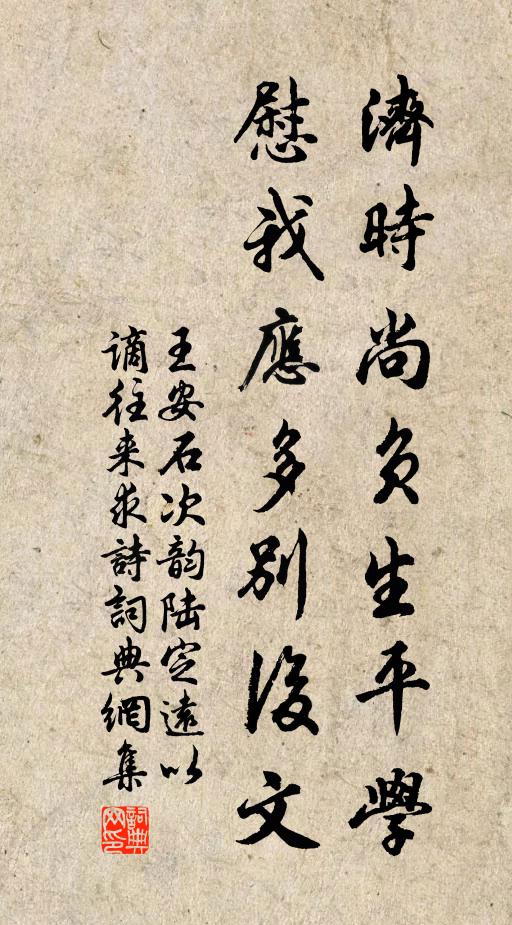 濟時尚負生平學
慰我應多別後文
王安石次韵陸定遠以
謫往来求詩詞典網集
詞典网印